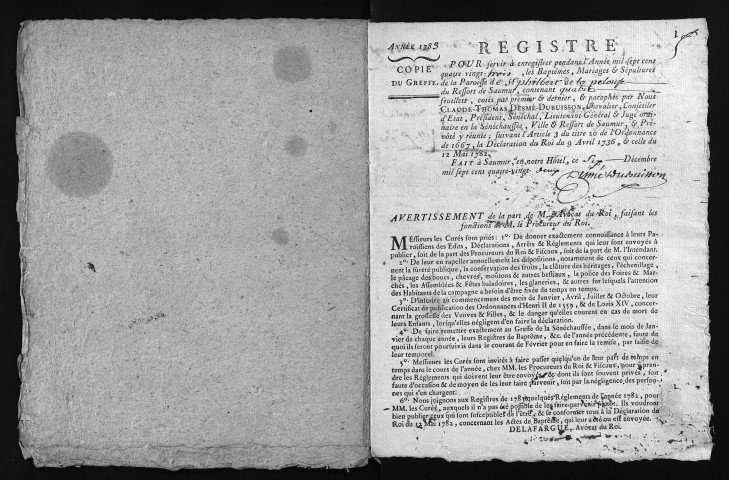 ANNÉE 1783
COPIE
DU GREFFE.
REGISTRE
POUR servir à enregistrer pendant l'Année mil sept cent
quatre vingt-trois, les Baptêmes, Mariages & Sépultures
de la Paroisse de St philbert de la pelouse
du Ressort de Saumur, contenant quatre
feuillets, cotés par premier & dernier, & paraphés par Nous
CLAUDE-THOMAS DESMÉ-DUBUISSON, Chevalier, Conseiller
d'Etat, Président, Sénéchal, Lieutenant Général & Juge ordi-
naire en la Sénéchaussée, Ville & Ressort de Saumur, & Pré-
vôté y réunie; suivant l'Article 3 du titre 20 de l'Ordonnance
de 1667, la Déclaration du Roi du 9 Avril 1736, & celle du
12 Mai 1782.
FAIT à Saumur, en notre Hôtel, ce six Décembre
mil sept cent quatre-vingt deux
Desmé Dubuisson
AVERTISSEMENT de la part de M. l'Avocat du Roi, faisant les
fonctions de M. le Procureur du Roi.
MEssieurs les Curés sont priés: 1°. De donner exactement connoissance à leurs Pa-
roissiens des Edits, Déclarations, Arrêts & Réglements qui leur sont envoyés à
publier, soit de la part des Procureurs du Roi & Fiscaux, soit de la part de M. l'Intendant.
2°. De leur en rapeller annuellement les dispositions, notamment de ceux qui concer-
nent la sûreté publique, la conservation des fruits, la clôture des héritages, l'échenillage,
le pâcage des boucs, chevres, moutons & autres bestiaux, la police des Foires & Mar-
chés, les Assemblées & Fêtes baladoires, les glaneries, & autres sur lesquels l'attention
des Habitants de la campagne a besoin d'être fixée de temps en temps.
3°. D'inscrire au commencement des mois de Janvier, Avril, Juillet & Octobre, leur
Certificat de publication des Ordonnances d'Henri II de 1559, & de Louis XIV, concer-
nant la grossesse des Veuves & Filles, & le danger qu'elles courent en cas de mort de
leurs Enfants, lorsqu'elles négligent d'en faire la déclaration.
4°. De faire remettre exactement au Greffe de la Sénéchaussée, dans le mois de Jan-
vier de chaque année, leurs Registres de Baptême, &c. de l'année précédente, faute de
quoi ils seront poursuivis dans le courant de Février pour en faire la remise, par saisie de
leur temporel.
5°. Messieurs les Curés sont invités à faire passer quelqu'un de leur part de temps en
temps dans le cours de l'année, chez MM. les Procureurs du Roi & Fiscaux, pour y pren-
dre les Réglements qui doivent leur être envoyés, & dont ils sont souvent privés, soit
faute d'occasion & de moyen de les leur faire parvenir, soit par la négligence des person-
nes qui s'en chargent.
6°. Nous joignons aux Registres de 1783 quelques Réglements de l'année 1782, pour
MM. les Curés, auxquels il n'a pas été possible de les faire parvenir plutôt. Ils voudront
bien publier ceux qui sont susceptibles de l'être, & se conformer tous à la Déclaration du
Roi du 12 Mai 1782, concernant les Actes de Baptême, qui leur a été ou est envoyée.
DELAFARGUE, Avocat du Roi.